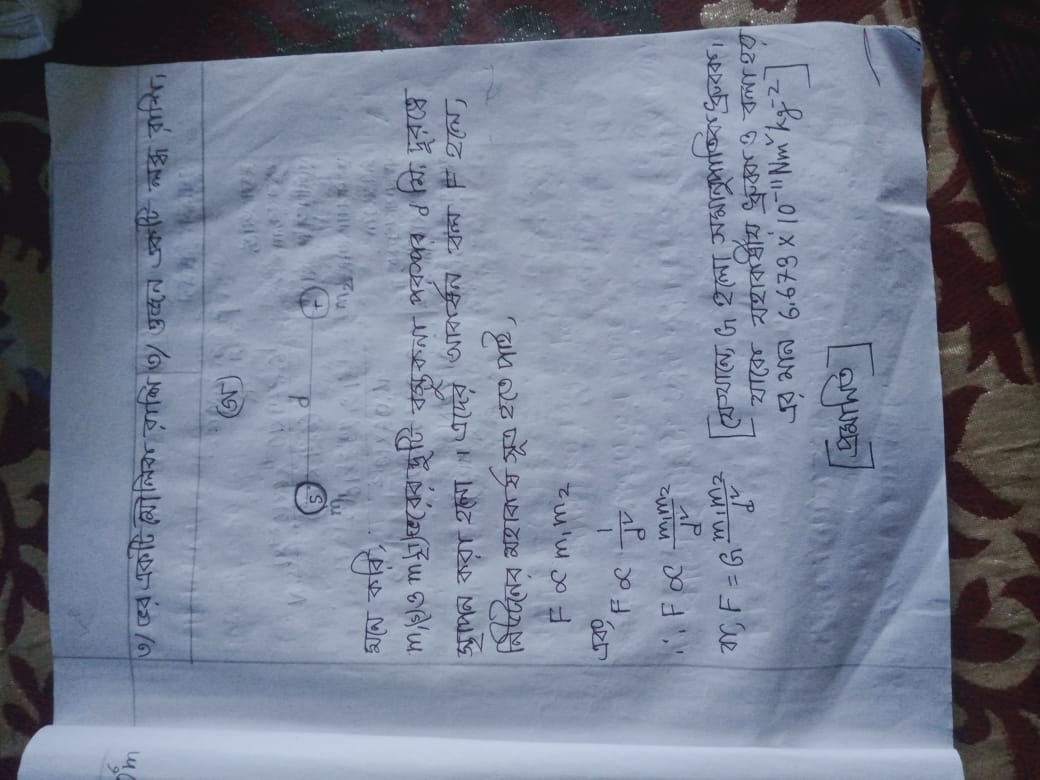 ৩/ ভর একটি মৌলিক রাশি ৩/ ওজন একটি লব্ধ রাশি।
(অ)
d
S
m₁
m₂
মনে করি,
m₁ ও m₂ ভরের দুটি বস্তুকনা পরস্পর d মি. দূরত্বে
স্থাপন করা হলো। এদের আকর্ষন বল F হলে,
নিউটনের মহাকর্ষ সূত্র হতে পাই,
F ∝ m₁m₂
এবং, F ∝ 1/d²
∴ F ∝ m₁m₂/d²
বা, F = G m₁m₂/d² [যেখানে G হলো সমানুপাতিক ধ্রুবক।
যাকে মহাকর্ষীয় ধ্রুবক ও বলা হয়
এর মান 6.673 × 10⁻¹¹ Nm²kg⁻²]
[প্রমানিত]